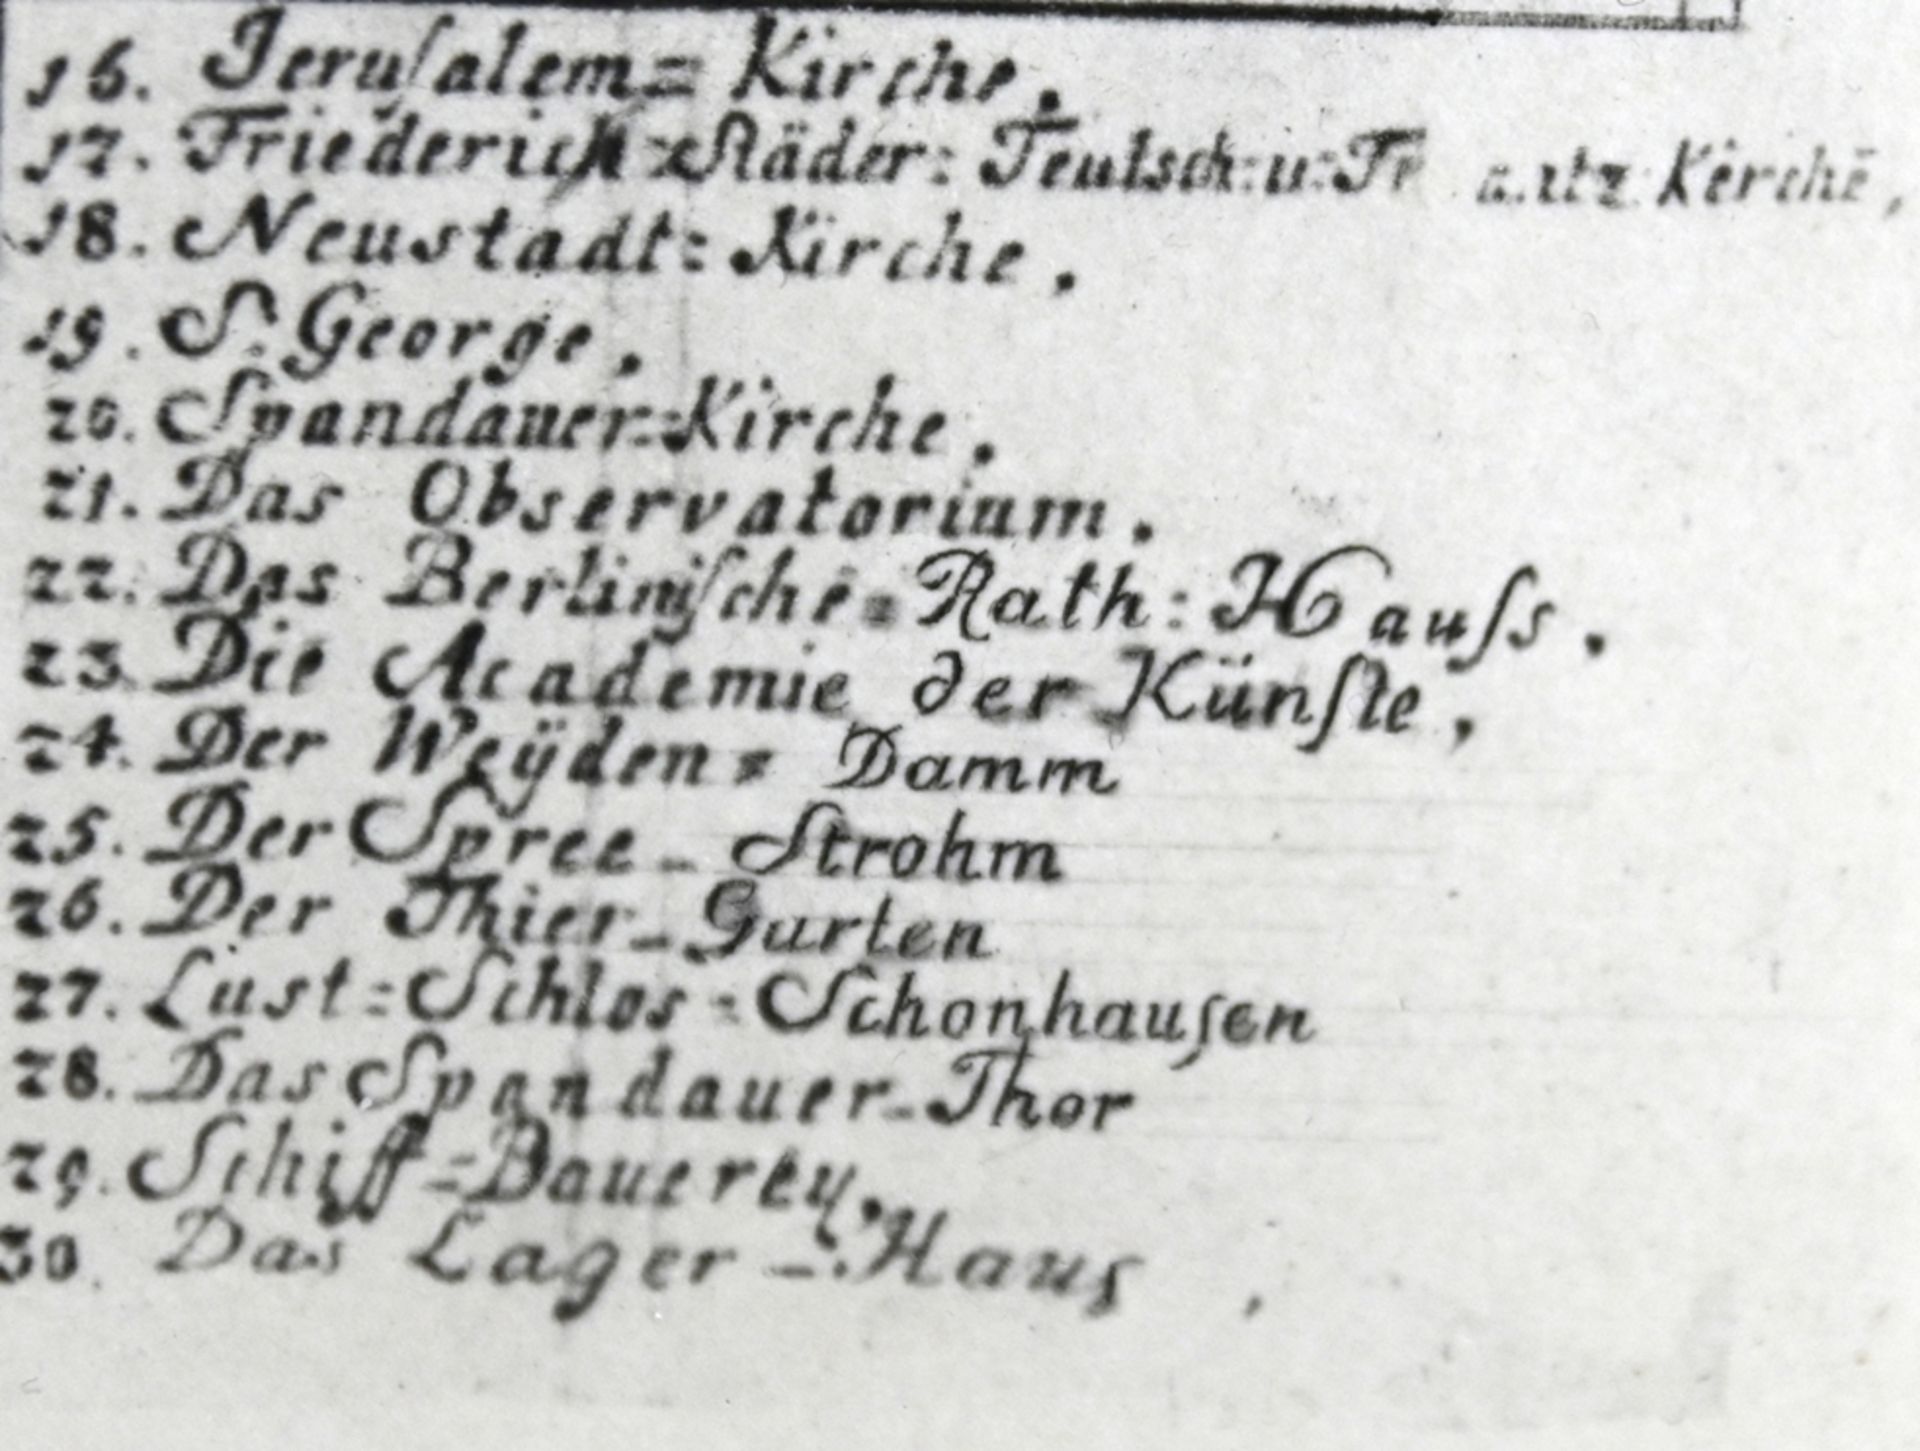 16. Jeruſalem= Kirche.
17. Friederich=Städer: Teutsch: u: Fr antz Kirche,
18. Neustadt: Kirche.
19. S. George.
20. Spandauer=Kirche.
21. Das Observatorium.
22. Das Berliniſche=Rath: Hauſs.
23. Die Academie der Künſte,
24. Der Weÿden= Damm
25. Der Spree - Strohm
26. Der Thier-Garten
27. Lust=Schlos=Schonhauſen
28. Das Spandauer-Thor
29. Schiff=Bauerey.
30. Das Lager-Haus,